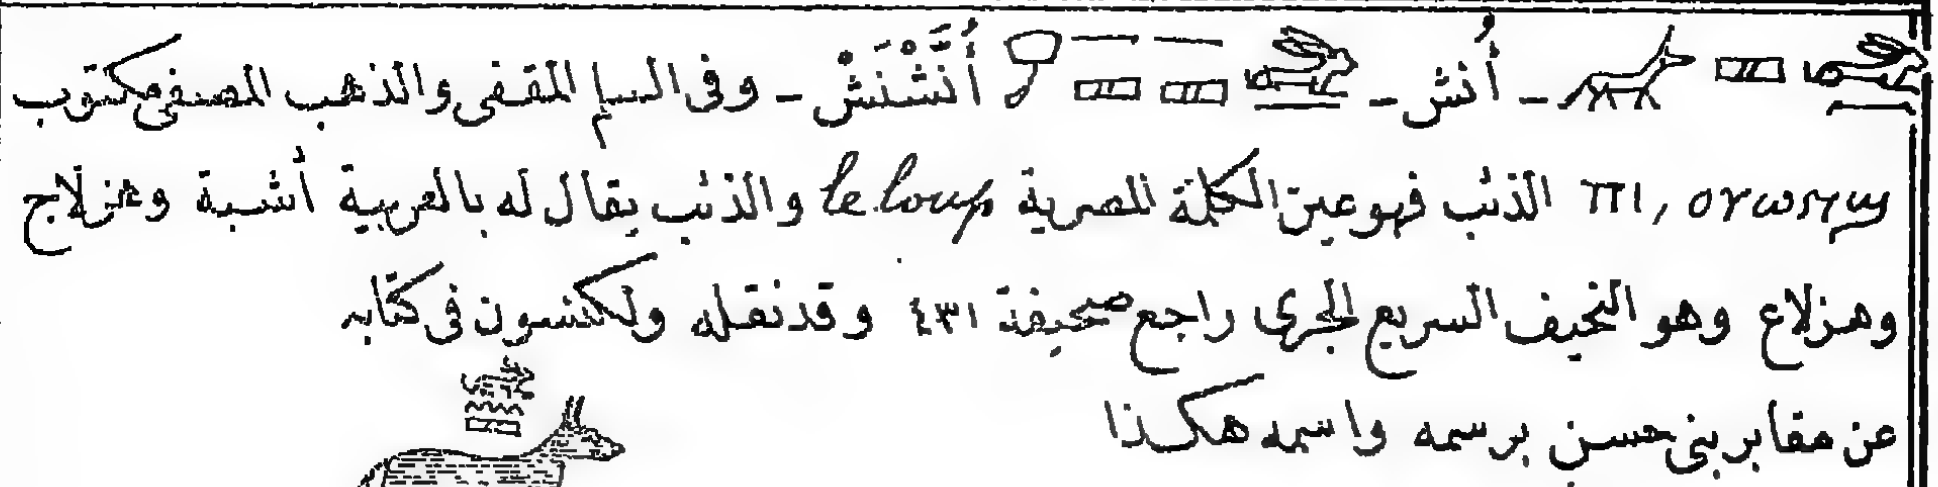 - أُنش - أُنَّشْنَشْ - وفى السلم المقفى والذهب المصفى مكتوب
ⲡⲓ, ⲟⲩⲱⲛϣ الذئب فهو عين الكلمة المصرية le loup والذئب يقال له بالعربية أشبة وهزلاج
وهزلاع وهو النحيف السريع الجرى راجع صحيفة ٤٣١ وقد نقله ولكنسون فى كتابه
عن مقابر بنى حسن برسمه واسمه هكذا